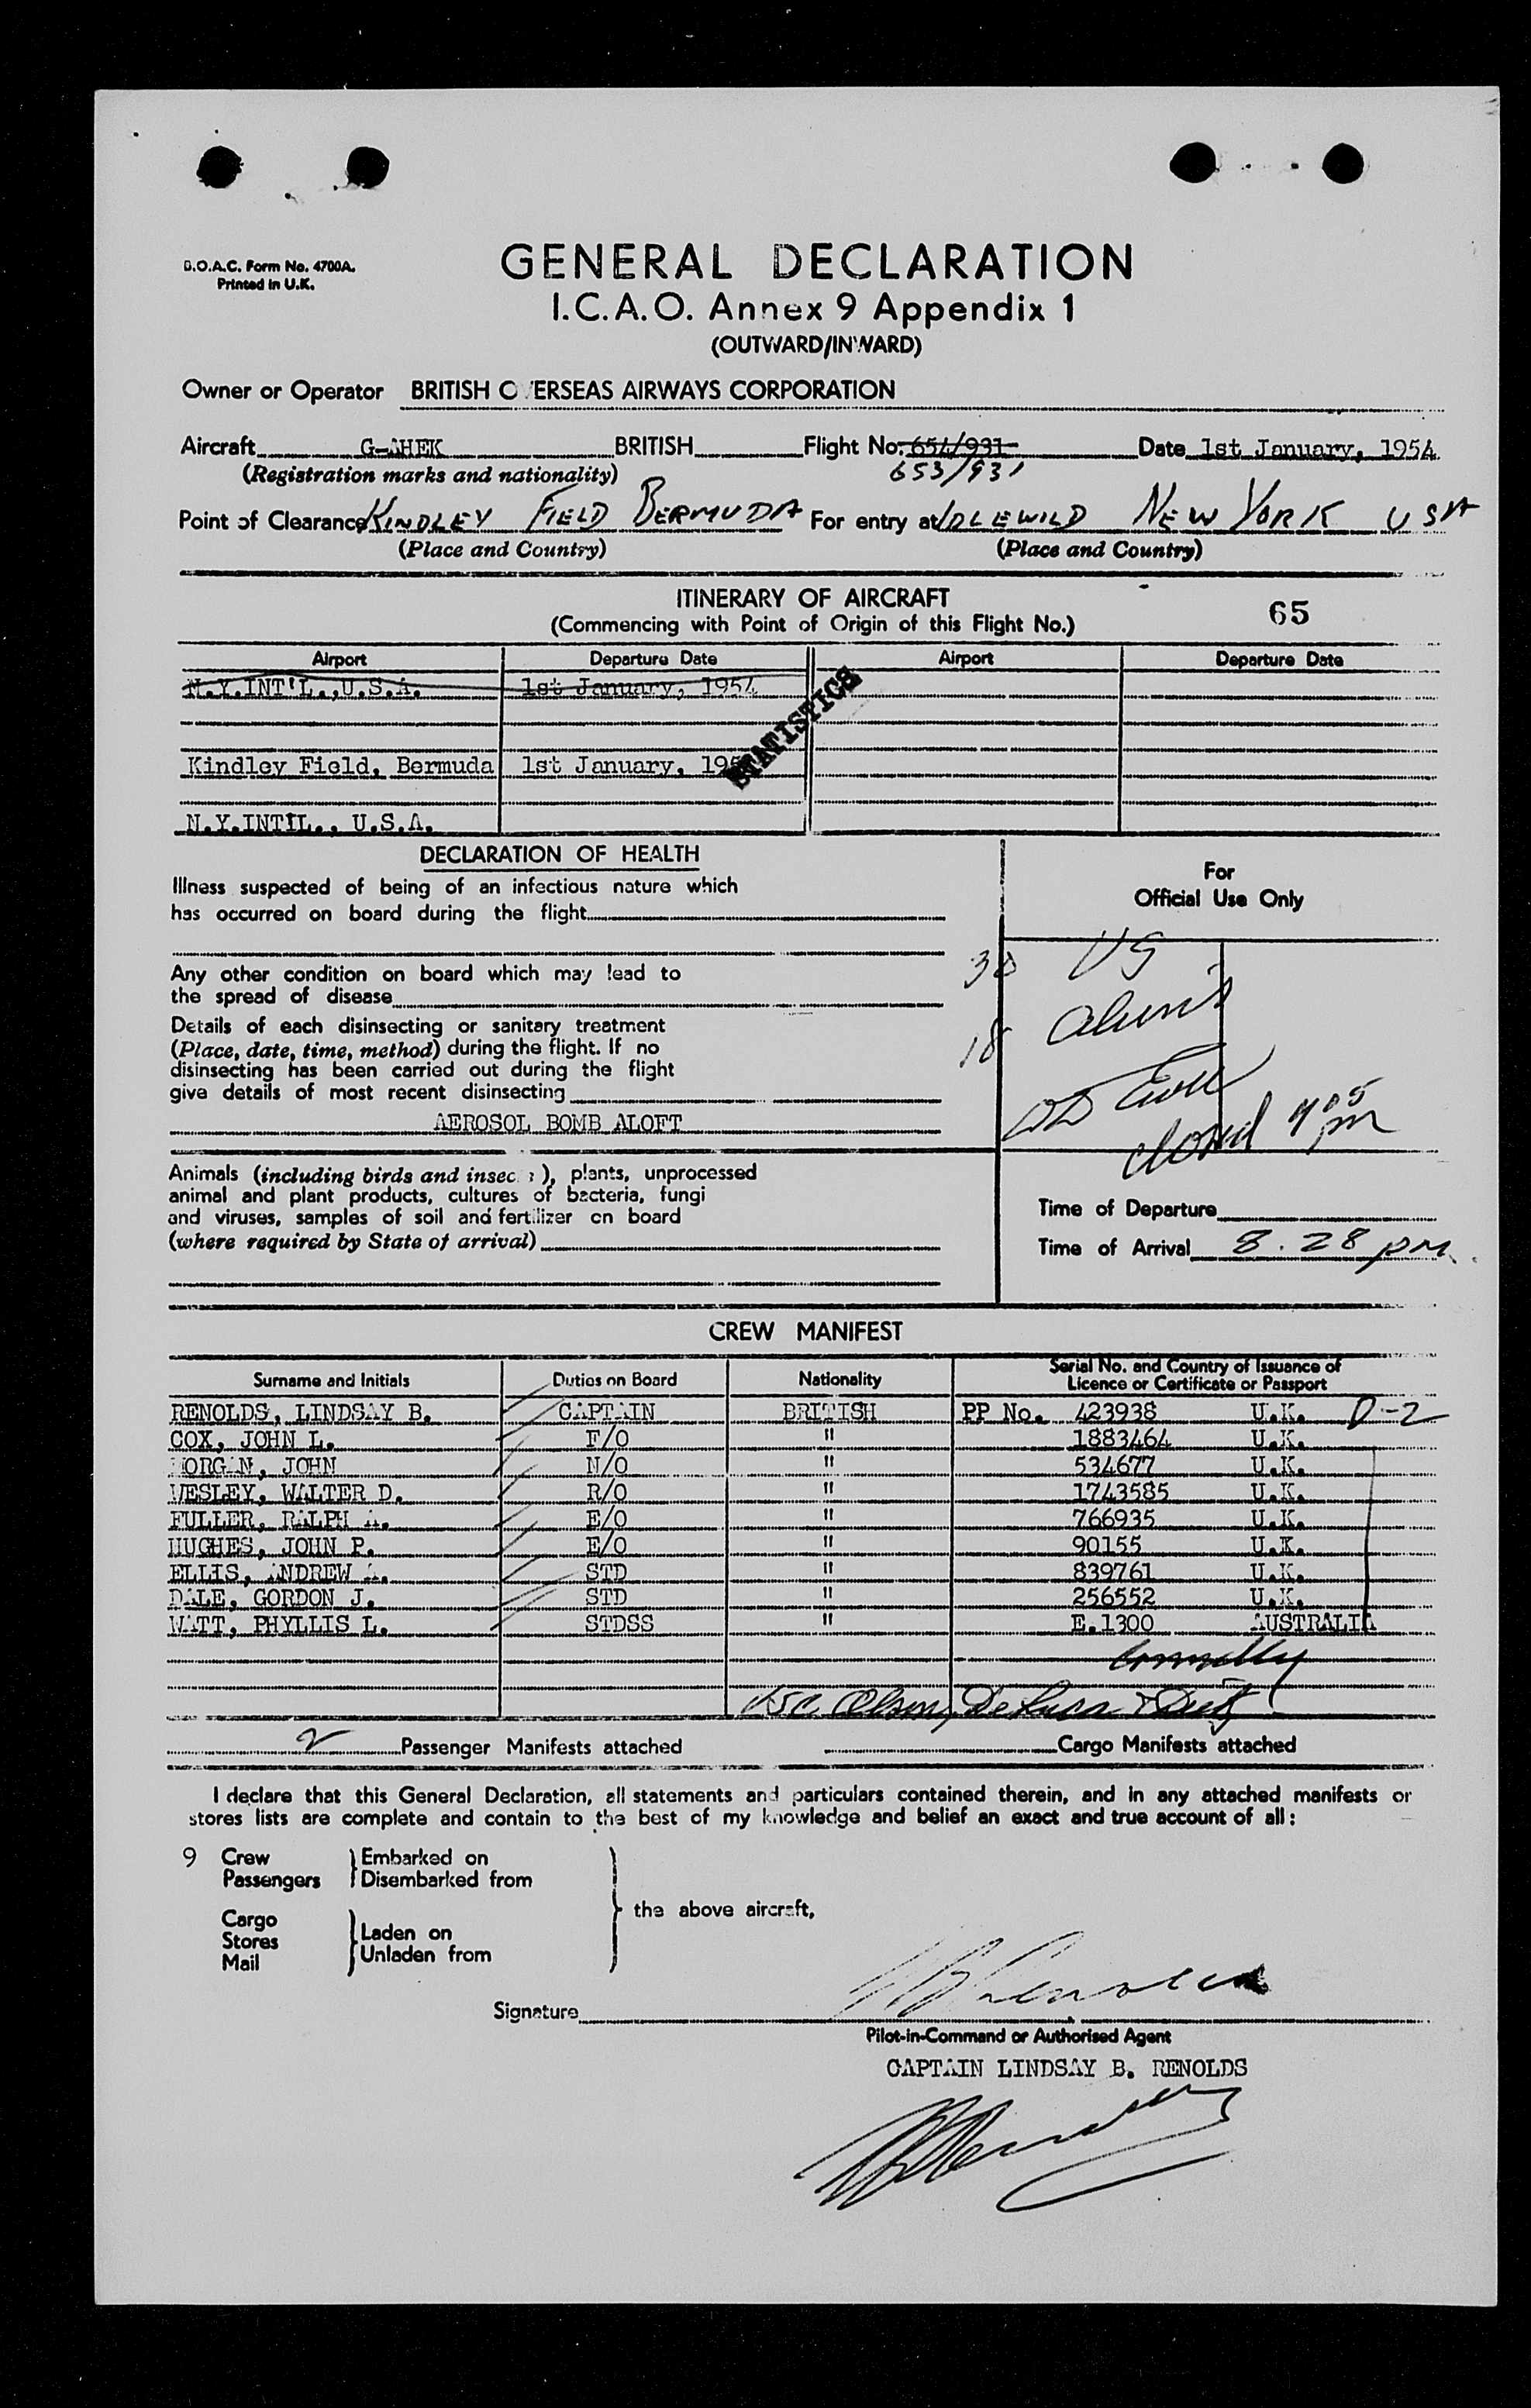 B.O.A.C. Form No. 4700A.
Printed in U.K.
GENERAL DECLARATION
I.C.A.O. Annex 9 Appendix 1
(OUTWARD/INWARD)
Owner or Operator BRITISH OVERSEAS AIRWAYS CORPORATION
Aircraft G-AHEK BRITISH Flight No. 654/931 Date 1st January, 1954
(Registration marks and nationality) 653/931
Point of Clearance KINDLEY FIELD BERMUDA For entry at IDLEWILD NEW YORK USA
(Place and Country) (Place and Country)
ITINERARY OF AIRCRAFT
(Commencing with Point of Origin of this Flight No.) 65
Airport Departure Date Airport Departure Date
N.Y.INT'L.,U.S.A. 1st January, 1954
STATISTICS
Kindley Field, Bermuda 1st January, 195
N.Y.INTIL., U.S.A.
DECLARATION OF HEALTH
For
Official Use Only
Illness suspected of being of an infectious nature which
has occurred on board during the flight
30 US
Any other condition on board which may lead to
the spread of disease
18 aliens
Details of each disinsecting or sanitary treatment
(Place, date, time, method) during the flight. If no
disinsecting has been carried out during the flight
give details of most recent disinsecting
AEROSOL BOMB ALOFT
closed 9 05 pm
Animals (including birds and insec ), plants, unprocessed
animal and plant products, cultures of bacteria, fungi
and viruses, samples of soil and fertilizer on board
(where required by State of arrival)
Time of Departure
Time of Arrival 8.28 pm.
CREW MANIFEST
Surname and Initials Duties on Board Nationality Serial No. and Country of Issuance of
Licence or Certificate or Passport
RENOLDS, LINDSAY B. CAPTAIN BRITISH PP No. 423938 U.K. D-2
COX, JOHN L. F/O " 1883464 U.K.
MORGAN, JOHN N/O " 534677 U.K.
WESLEY, WALTER D. R/O " 1743585 U.K.
FULLER, RALPH A. E/O " 766935 U.K.
HUGHES, JOHN P. E/O " 90155 U.K.
ELLIS, ANDREW A. STD " 839761 U.K.
DALE, GORDON J. STD " 256552 U.K.
WATT, PHYLLIS L. STDSS " E.1300 AUSTRALIA
Connolly
Olson, DeLuca &
2 Passenger Manifests attached Cargo Manifests attached
I declare that this General Declaration, all statements and particulars contained therein, and in any attached manifests or
stores lists are complete and contain to the best of my knowledge and belief an exact and true account of all:
9 Crew Embarked on
Passengers Disembarked from
the above aircraft,
Cargo
Stores Laden on
Mail Unladen from
Signature LB Renolds
Pilot-in-Command or Authorised Agent
CAPTAIN LINDSAY B. RENOLDS